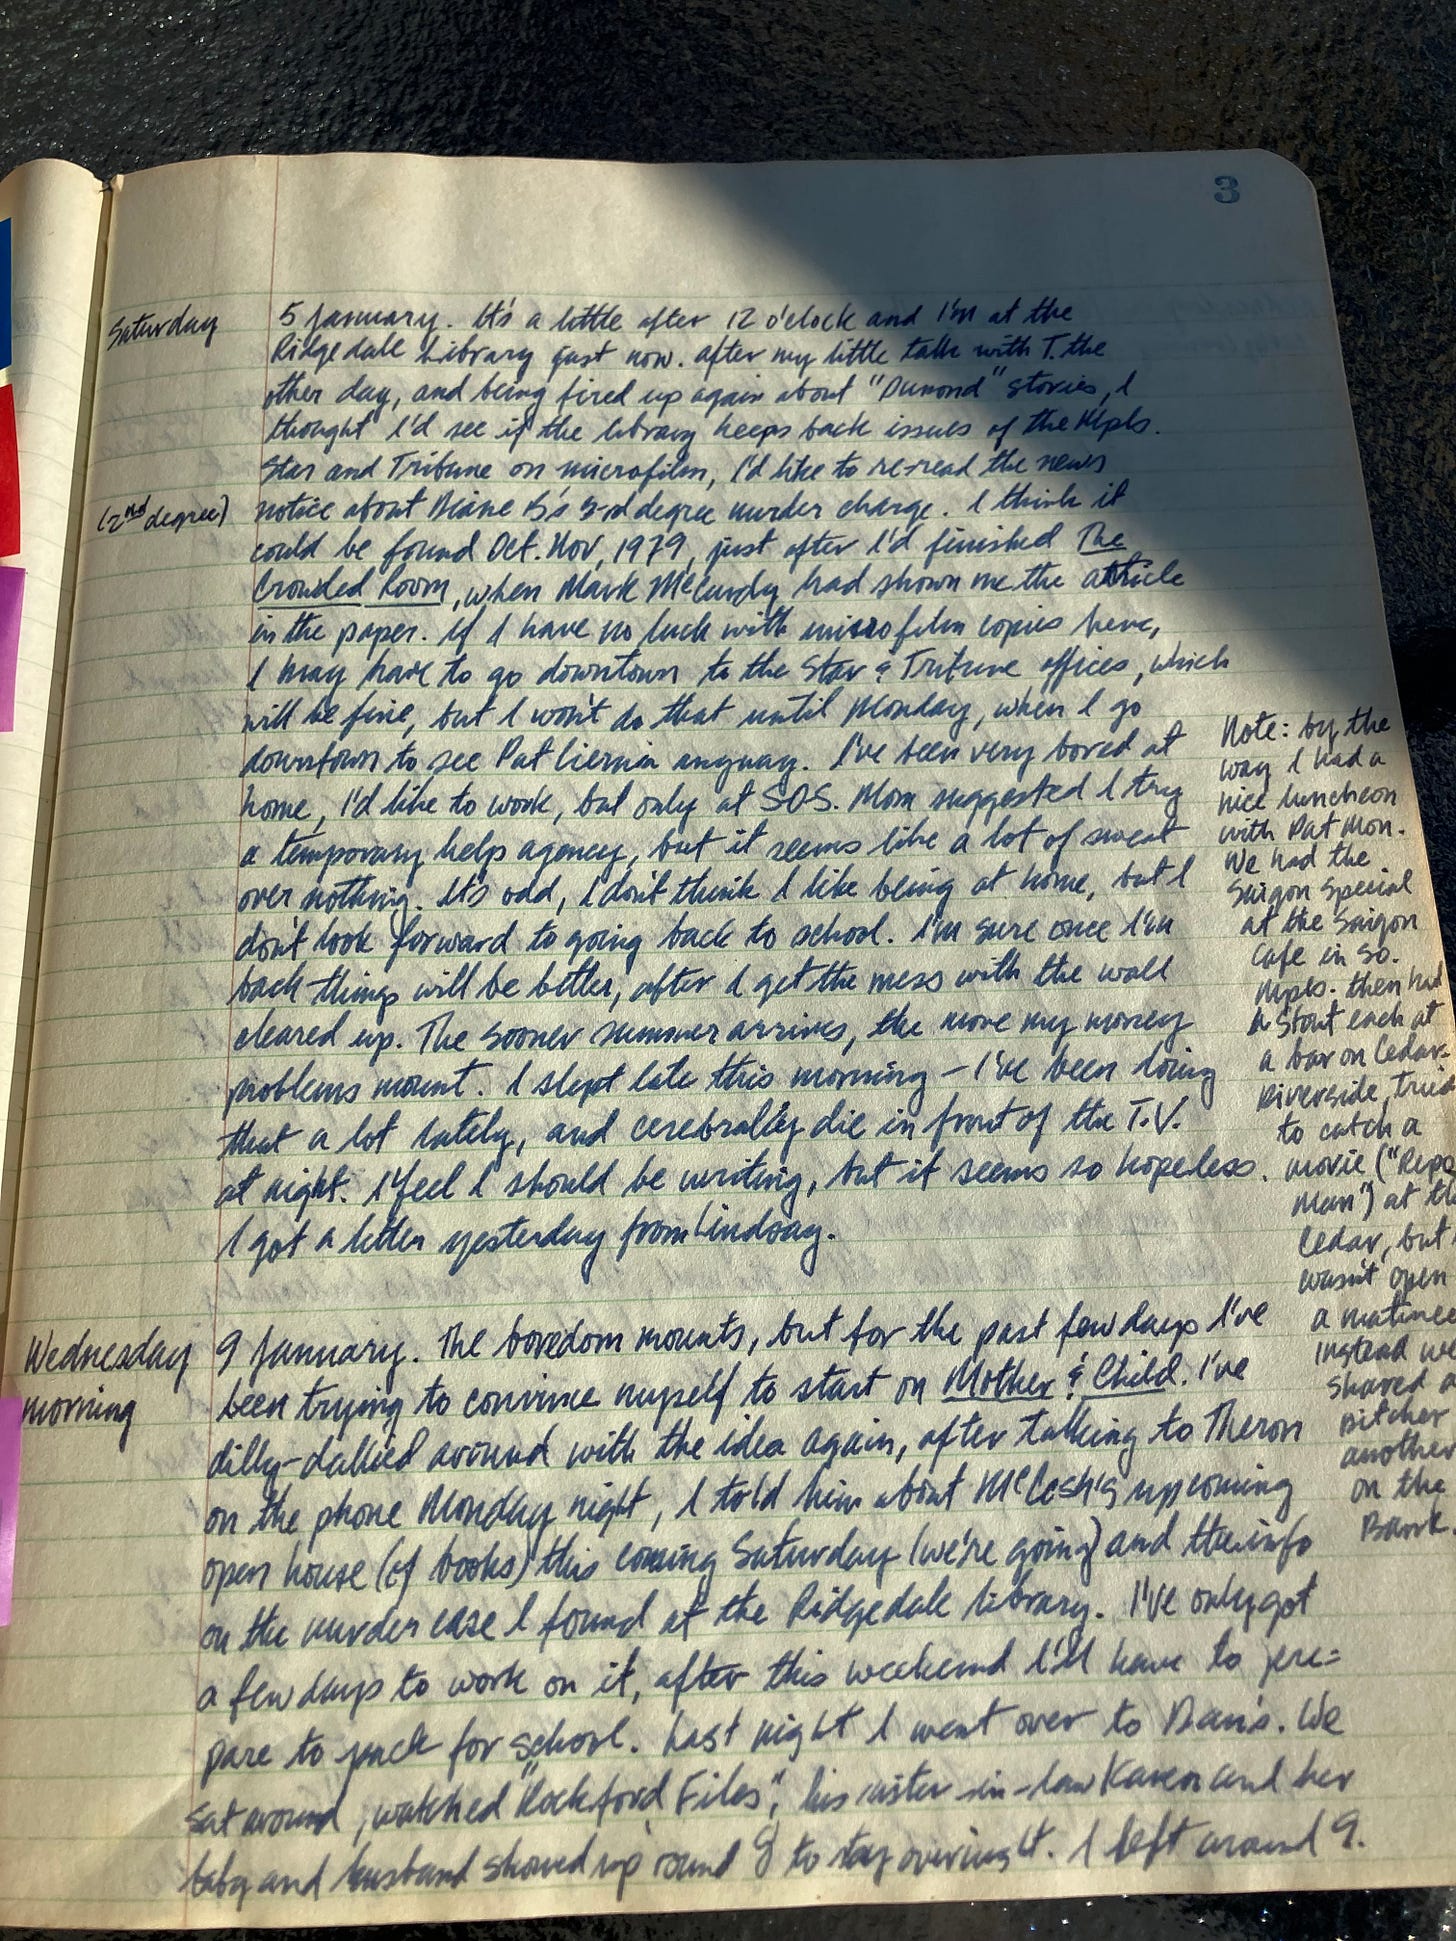 3
Saturday
5 January. It's a little after 12 o'clock and I'm at the
Ridgedale Library just now. After my little talk with T. the
other day, and being fired up again about "Dumond" stories, I
thought I'd see if the library keeps back issues of the Mpls.
Star and Tribune on microfilm, I'd like to re-read the news
(2nd degree)
notice about Diane B's 3rd degree murder charge. I think it
could be found Oct. Nov, 1979, just after I'd finished The
Crowded Room, when Mark McCurdy had shown me the article
in the paper. If I have no luck with microfilm copies here,
I may have to go downtown to the Star & Tribune offices, which
will be fine, but I won't do that until Monday, when I go
downtown to see Pat anyway. I've been very bored at
home, I'd like to work, but only at SOS. Mom suggested I try
a temporary helps agency, but it seems like a lot of sweat
over nothing. It's odd, I don't think I like being at home, but I
don't look forward to going back to school. I'm sure once I'm
back things will be better, after I get the mess with the wall
cleared up. The sooner summer arrives, the more my money
problems mount. I slept late this morning - I've been doing
that a lot lately, and cerebrally die in front of the T.V.
at night. I feel I should be writing, but it seems so hopeless.
I got a letter yesterday from Lindsay.
Note: by the
way I had a
nice luncheon
with Pat Mon.
We had the
Saigon Special
at the Saigon
Cafe in So.
Mpls. then had
a stout each at
a bar on Cedar-
Riverside, tried
to catch a
movie ("Repo
Man") at the
Cedar, but
wasn't open
a matinee
instead we
shared a
pitcher
another
on the
Bank
Wednesday
morning
9 January. The boredom mounts, but for the past few days I've
been trying to convince myself to start on Mother & Child. I've
dilly-dallied around with the idea again, after talking to Theron
on the phone Monday night, I told him about McCosh's upcoming
open house (of books) this coming Saturday (we're going) and the info
on the murder case I found at the Ridgedale Library. I've only got
a few days to work on it, after this weekend I'll have to pre=
pare to pack for school. Last night I went over to Dan's. We
sat around, watched "Rockford Files", his sister-in-law Karen and her
baby and husband showed up round 8 to stay overnight. I left around 9.